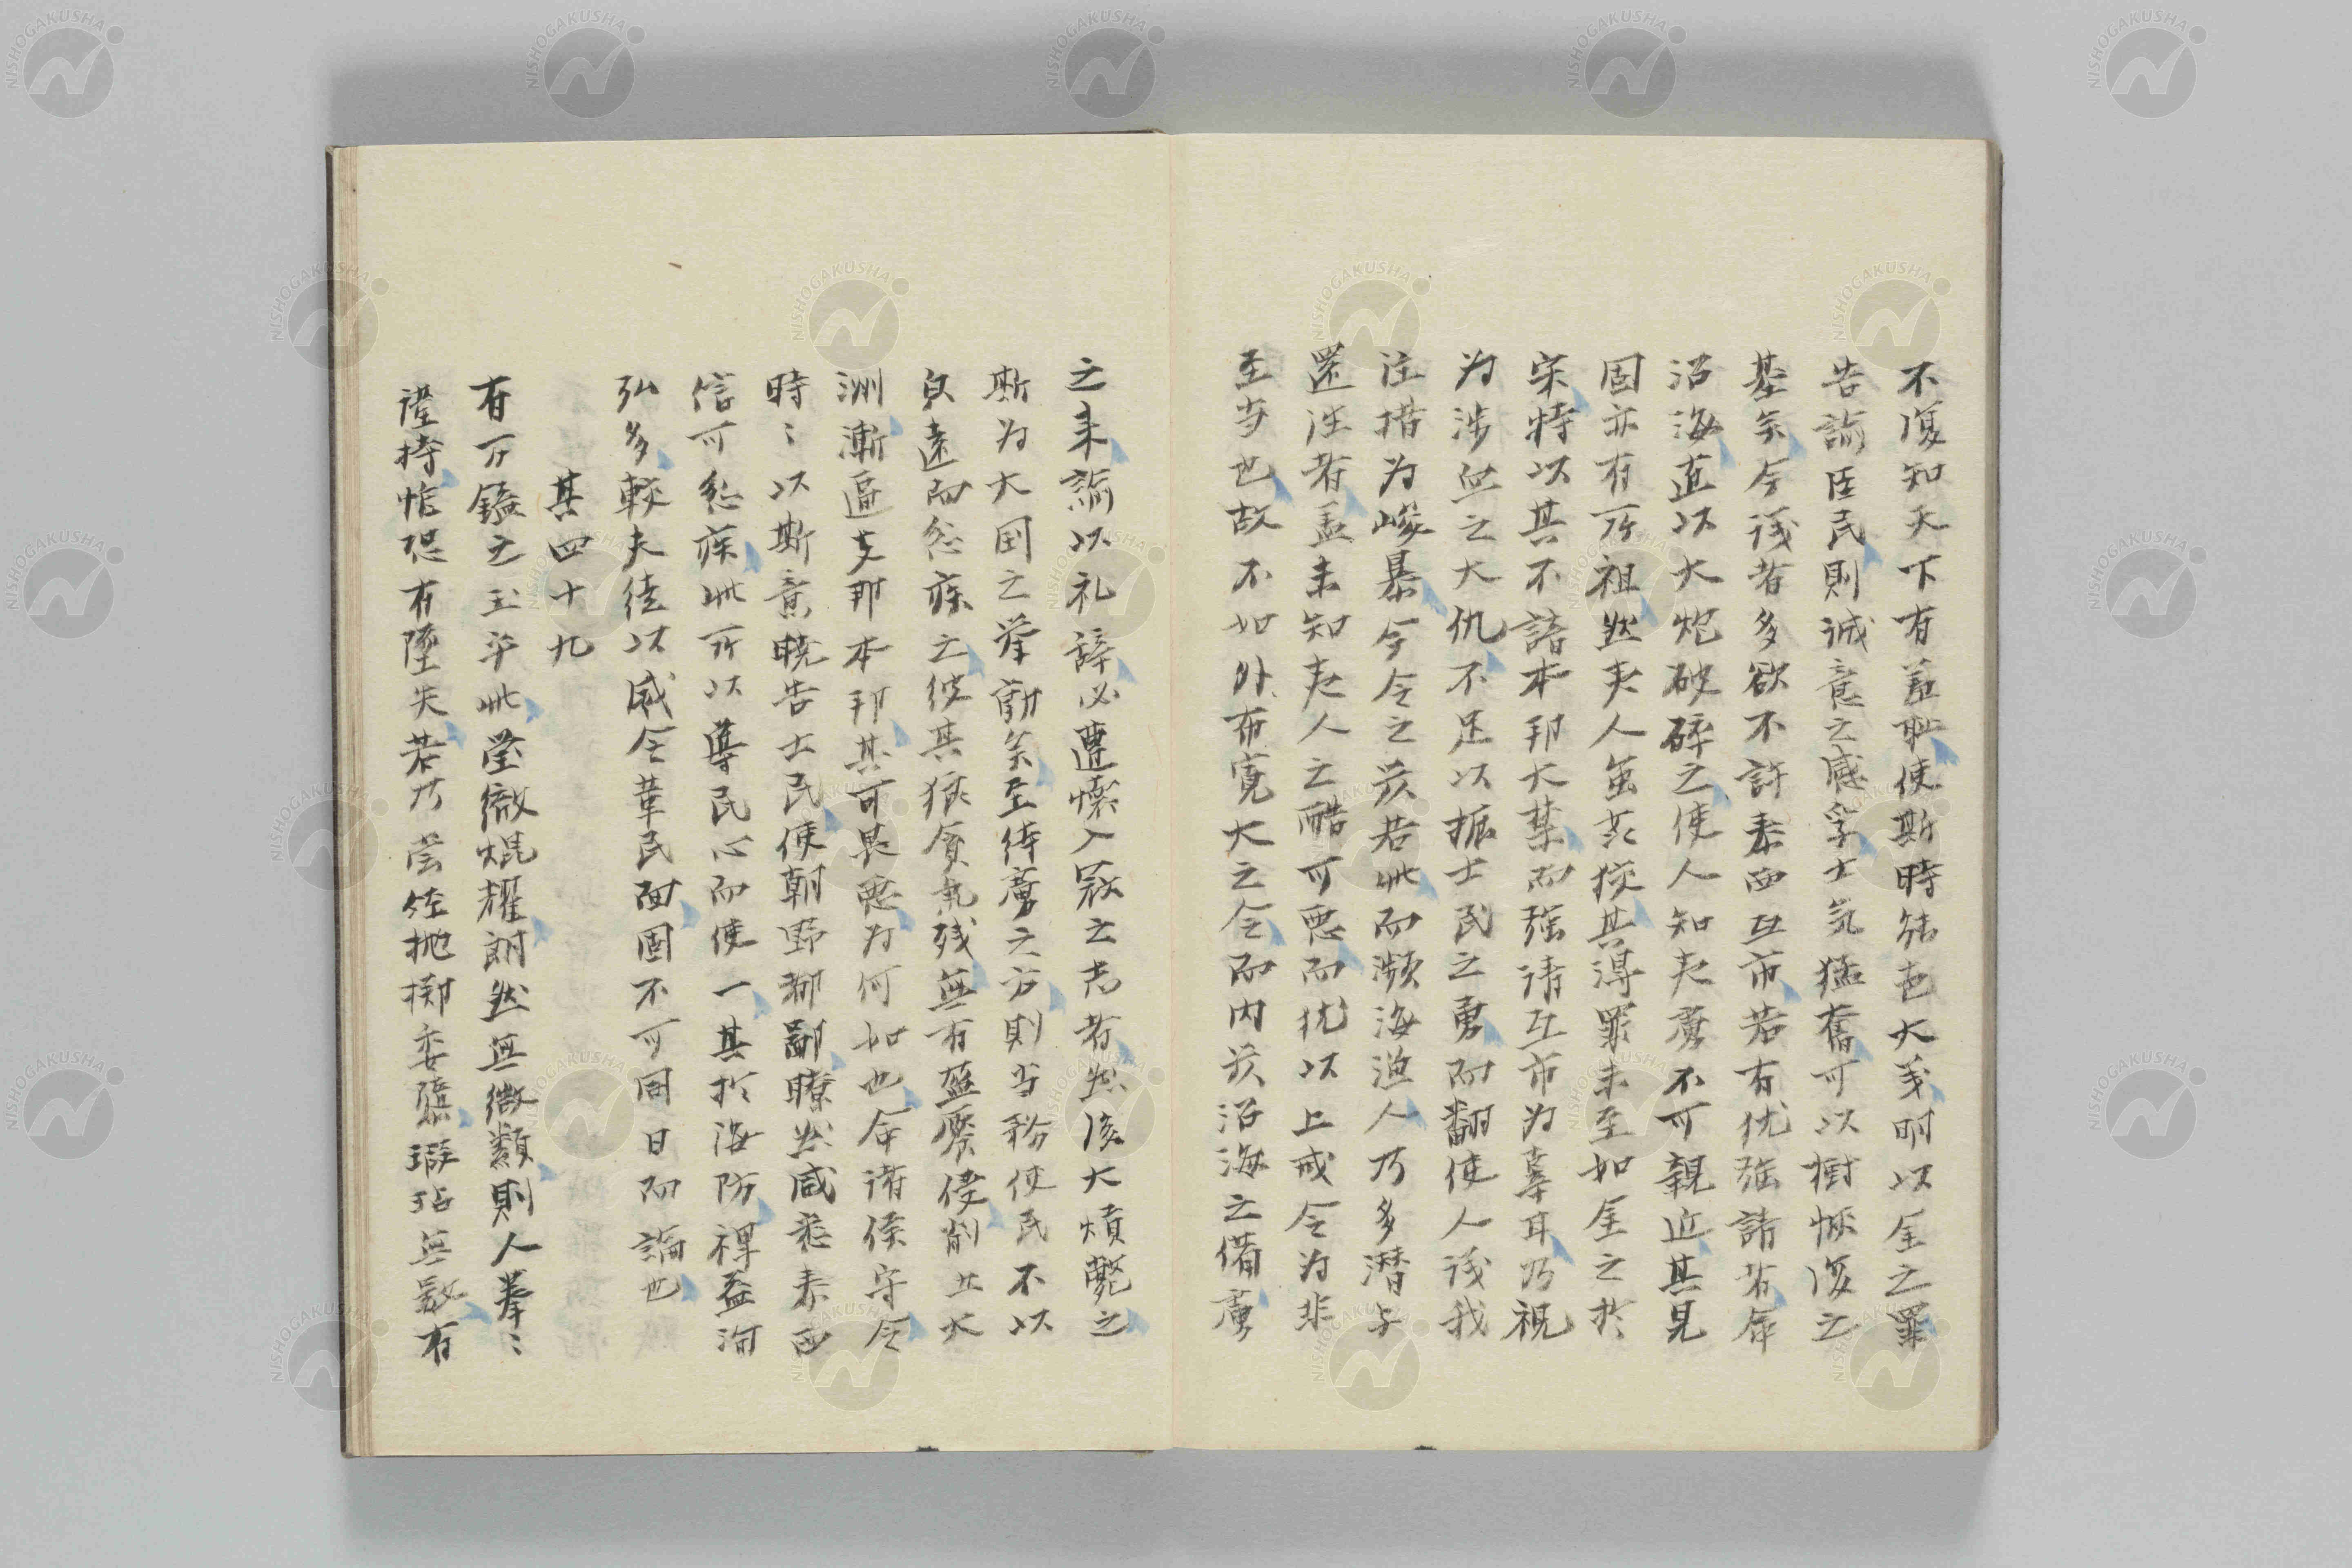 不復知天下有羞恥使斯時能色大義明以全之罪
告諭臣民則誠意之感孚士気猛奮可以樹恢復之
基矣今議者多欲不許泰西互市若有優強請者年
沿海直以大炮破碎之使人知夷虜不可親近其見
固亦有所祖然夷人虽荒獷其得罪未至如金之於
宋特以其不諳本邦大禁而強請互市为辜耳乃視
为涉血之大仇不足以振士民之勇而翻使人議我
注措为峻暴今令之炭若此而瀕海漁人乃多潜与
還注者盖未知夷人之酷可悪而优以上戒令为非
至当也故不如外布寛大之令而内炭沿海之備虜
之来諭以礼辞必遭懐入寇之志者然後大熕斃之
斯为大国之挙動矣至待虜之方則当務使民不以
臭遠而忽蔟之彼其狼貪気残無有盈厭侵削五大
洲漸逼支那本邦其可畏悪为何如也命諸侯守令
時々以斯意暁告士民使朝野郷鄙瞭然咸悉泰西
信可忽蔟此所以導民心而使一其於海防裨益洵
弘多較夫徒以威令葦民面固不可同日而論也
其四十九
有万鎰之玉乎此瑩徹焜耀朗然無微類則人挙々
謹持惟恐有墜失若乃蛍侄抛擲委隳瑕玷無数有